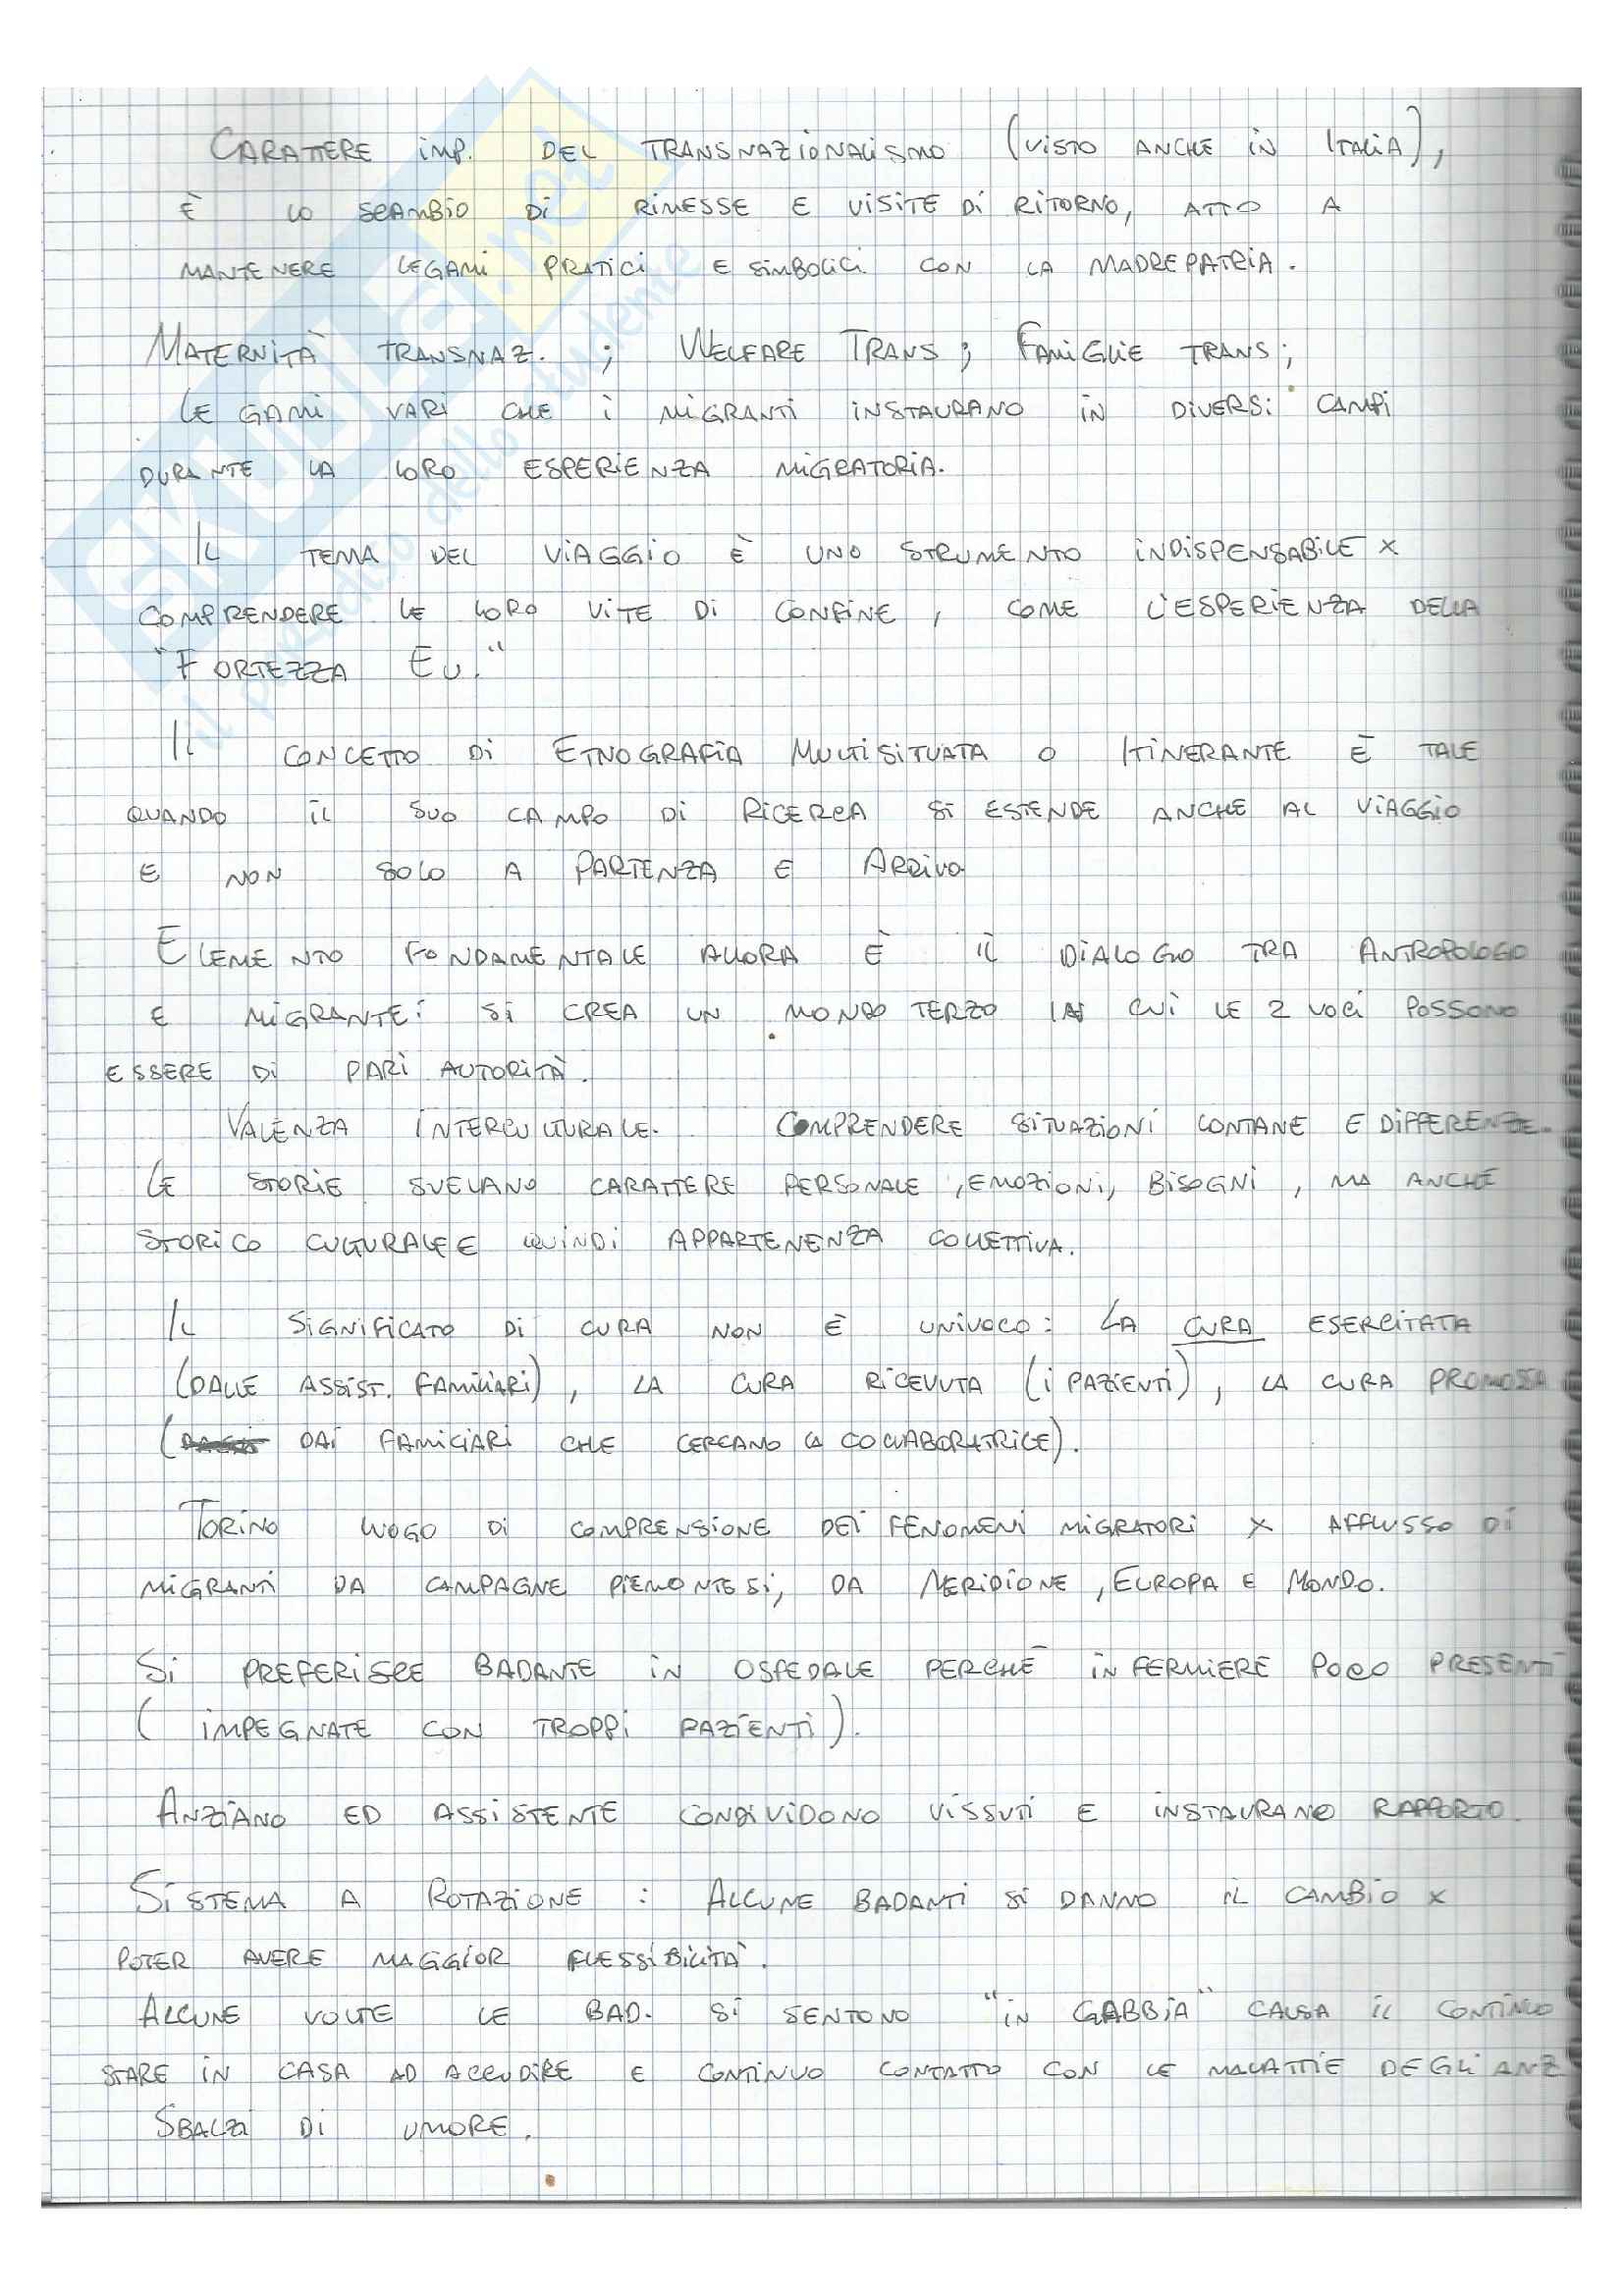 CARATTERE imp. DEL TRANSNAZIONALISMO (VISTO ANCHE IN ITALIA),
È LO SCAMBIO DI RIMESSE E VISITE DI RITORNO, ATTO A
MANTENERE LEGAMI PRATICI E SIMBOLICI CON LA MADREPATRIA.
MATERNITÀ TRANSNAZ. ; WELFARE TRANS ; FAMIGLIE TRANS ;
LEGAMI VARI CHE I MIGRANTI INSTAURANO IN DIVERSI CAMPI
DURANTE LA LORO ESPERIENZA MIGRATORIA.
IL TEMA DEL VIAGGIO È UNO STRUMENTO INDISPENSABILE X
COMPRENDERE LE LORO VITE DI CONFINE, COME L'ESPERIENZA DELLA
"FORTEZZA EU."
IL CONCETTO DI ETNOGRAFIA MULTISITUATA O ITINERANTE È TALE
QUANDO IL SUO CAMPO DI RICERCA SI ESTENDE ANCHE AL VIAGGIO
E NON SOLO A PARTENZA E ARRIVO
ELEMENTO FONDAMENTALE ALLORA È IL DIALOGO TRA ANTROPOLOGO
E MIGRANTE: SI CREA UN MONDO TERZO IN CUI LE 2 VOCI POSSONO
ESSERE DI PARI AUTORITÀ.
VALENZA INTERCULTURALE. COMPRENDERE SITUAZIONI LONTANE E DIFFERENZE.
LE STORIE SVELANO CARATTERE PERSONALE, EMOZIONI, BISOGNI, MA ANCHE
STORICO CULTURALE E QUINDI APPARTENENZA COLLETTIVA.
IL SIGNIFICATO DI CURA NON È UNIVOCO: LA CURA ESERCITATA
(DALLE ASSIST. FAMILIARI), LA CURA RICEVUTA (I PAZIENTI), LA CURA PROMOSSA
(DAI FAMILIARI CHE CERCANO LA COLLABORATRICE).
TORINO LUOGO DI COMPRENSIONE DEI FENOMENI MIGRATORI X AFFLUSSO DI
MIGRANTI DA CAMPAGNE PIEMONTESI, DA MERIDIONE, EUROPA E MONDO.
SI PREFERISCE BADANTE IN OSPEDALE PERCHÉ INFERMIERE POCO PRESENTI
(IMPEGNATE CON TROPPI PAZIENTI).
ANZIANO ED ASSISTENTE CONDIVIDONO VISSUTI E INSTAURANO RAPPORTO.
SISTEMA A ROTAZIONE : ALCUNE BADANTI SI DANNO IL CAMBIO X
POTER AVERE MAGGIOR FLESSIBILITÀ.
ALCUNE VOLTE LE BAD. SI SENTONO "IN GABBIA" CAUSA IL CONTINUO
STARE IN CASA AD ACCUDIRE E CONTINUO CONTATTO CON LE MALATTIE DEGLI ANZ
SBALZI DI UMORE.
SKUOLA.net
il paradiso dello studente